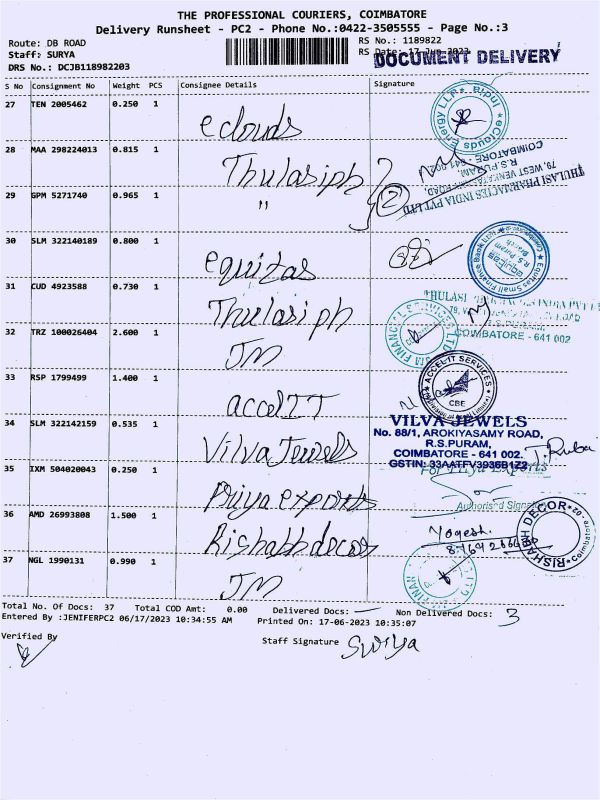 THE PROFESSIONAL COURIERS, COIMBATORE
Delivery Runsheet - PC2 - Phone No.:0422-3505555 - Page No.:3
Route: DB ROAD
RS No.: 1189822
Staff: SURYA
RS Date: 17 Jun 2023
DOCUMENT DELIVERY
DRS No.: DCJB118982203
S No Consignment No Weight PCS Consignee Details Signature
27 TEN 2005462 0.250 1 eclouds
eClouds Energy LLP. India
28 MAA 298224013 0.815 1 Thulasiph
THULASI PHARMACIES INDIA PVT LTD
79, WEST VENKATASAMY ROAD,
R.S.PURAM,
COIMBATORE - 641 002
29 GPM 5271740 0.965 1 "
2
30 SLM 322140189 0.800 1 equitas
Equitas Small Finance Bank Ltd.
equitas
R S Puram
Branch
Coimbatore
31 CUD 4923588 0.730 1 Thulasiph
THULASI PHARMACIES INDIA PVT LT
COIMBATORE - 641 002
32 TRZ 100026404 2.600 1 JM
JM FINANCIAL SERVICES LTD
33 RSP 1799499 1.400 1 accelIT
ACCEL IT SERVICES
CBE
34 SLM 322142159 0.535 1 Vilva Jewels
VILVA JEWELS
No. 88/1, AROKIYASAMY ROAD,
R.S.PURAM,
COIMBATORE - 641 002.
GSTIN: 33AATFV3936B1Z2
T. Ruba
35 IXM 504020043 0.250 1 Priya exports
For Priya Exports
Authorised Signatory
36 AMD 26993808 1.500 1 Rishabhdecor
Yogesh.
RISHABH DECOR
Coimbatore
37 NGL 1990131 0.990 1 JM
Total No. Of Docs: 37 Total COD Amt: 0.00 Delivered Docs: — Non Delivered Docs: 3
Entered By :JENIFERPC2 06/17/2023 10:34:55 AM Printed On: 17-06-2023 10:35:07
Verified By
Staff Signature Surya